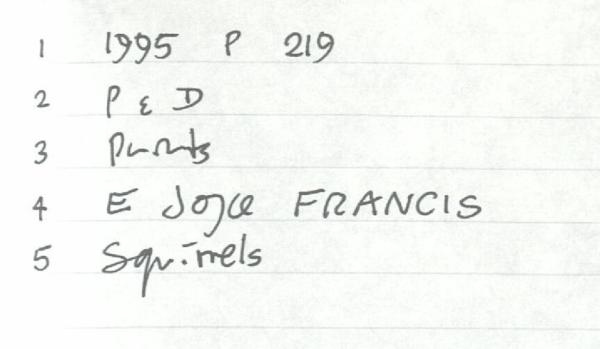 1 1995 P 219
2 P & D
3 Prints
4 E Joyce FRANCIS
5 Squirrels